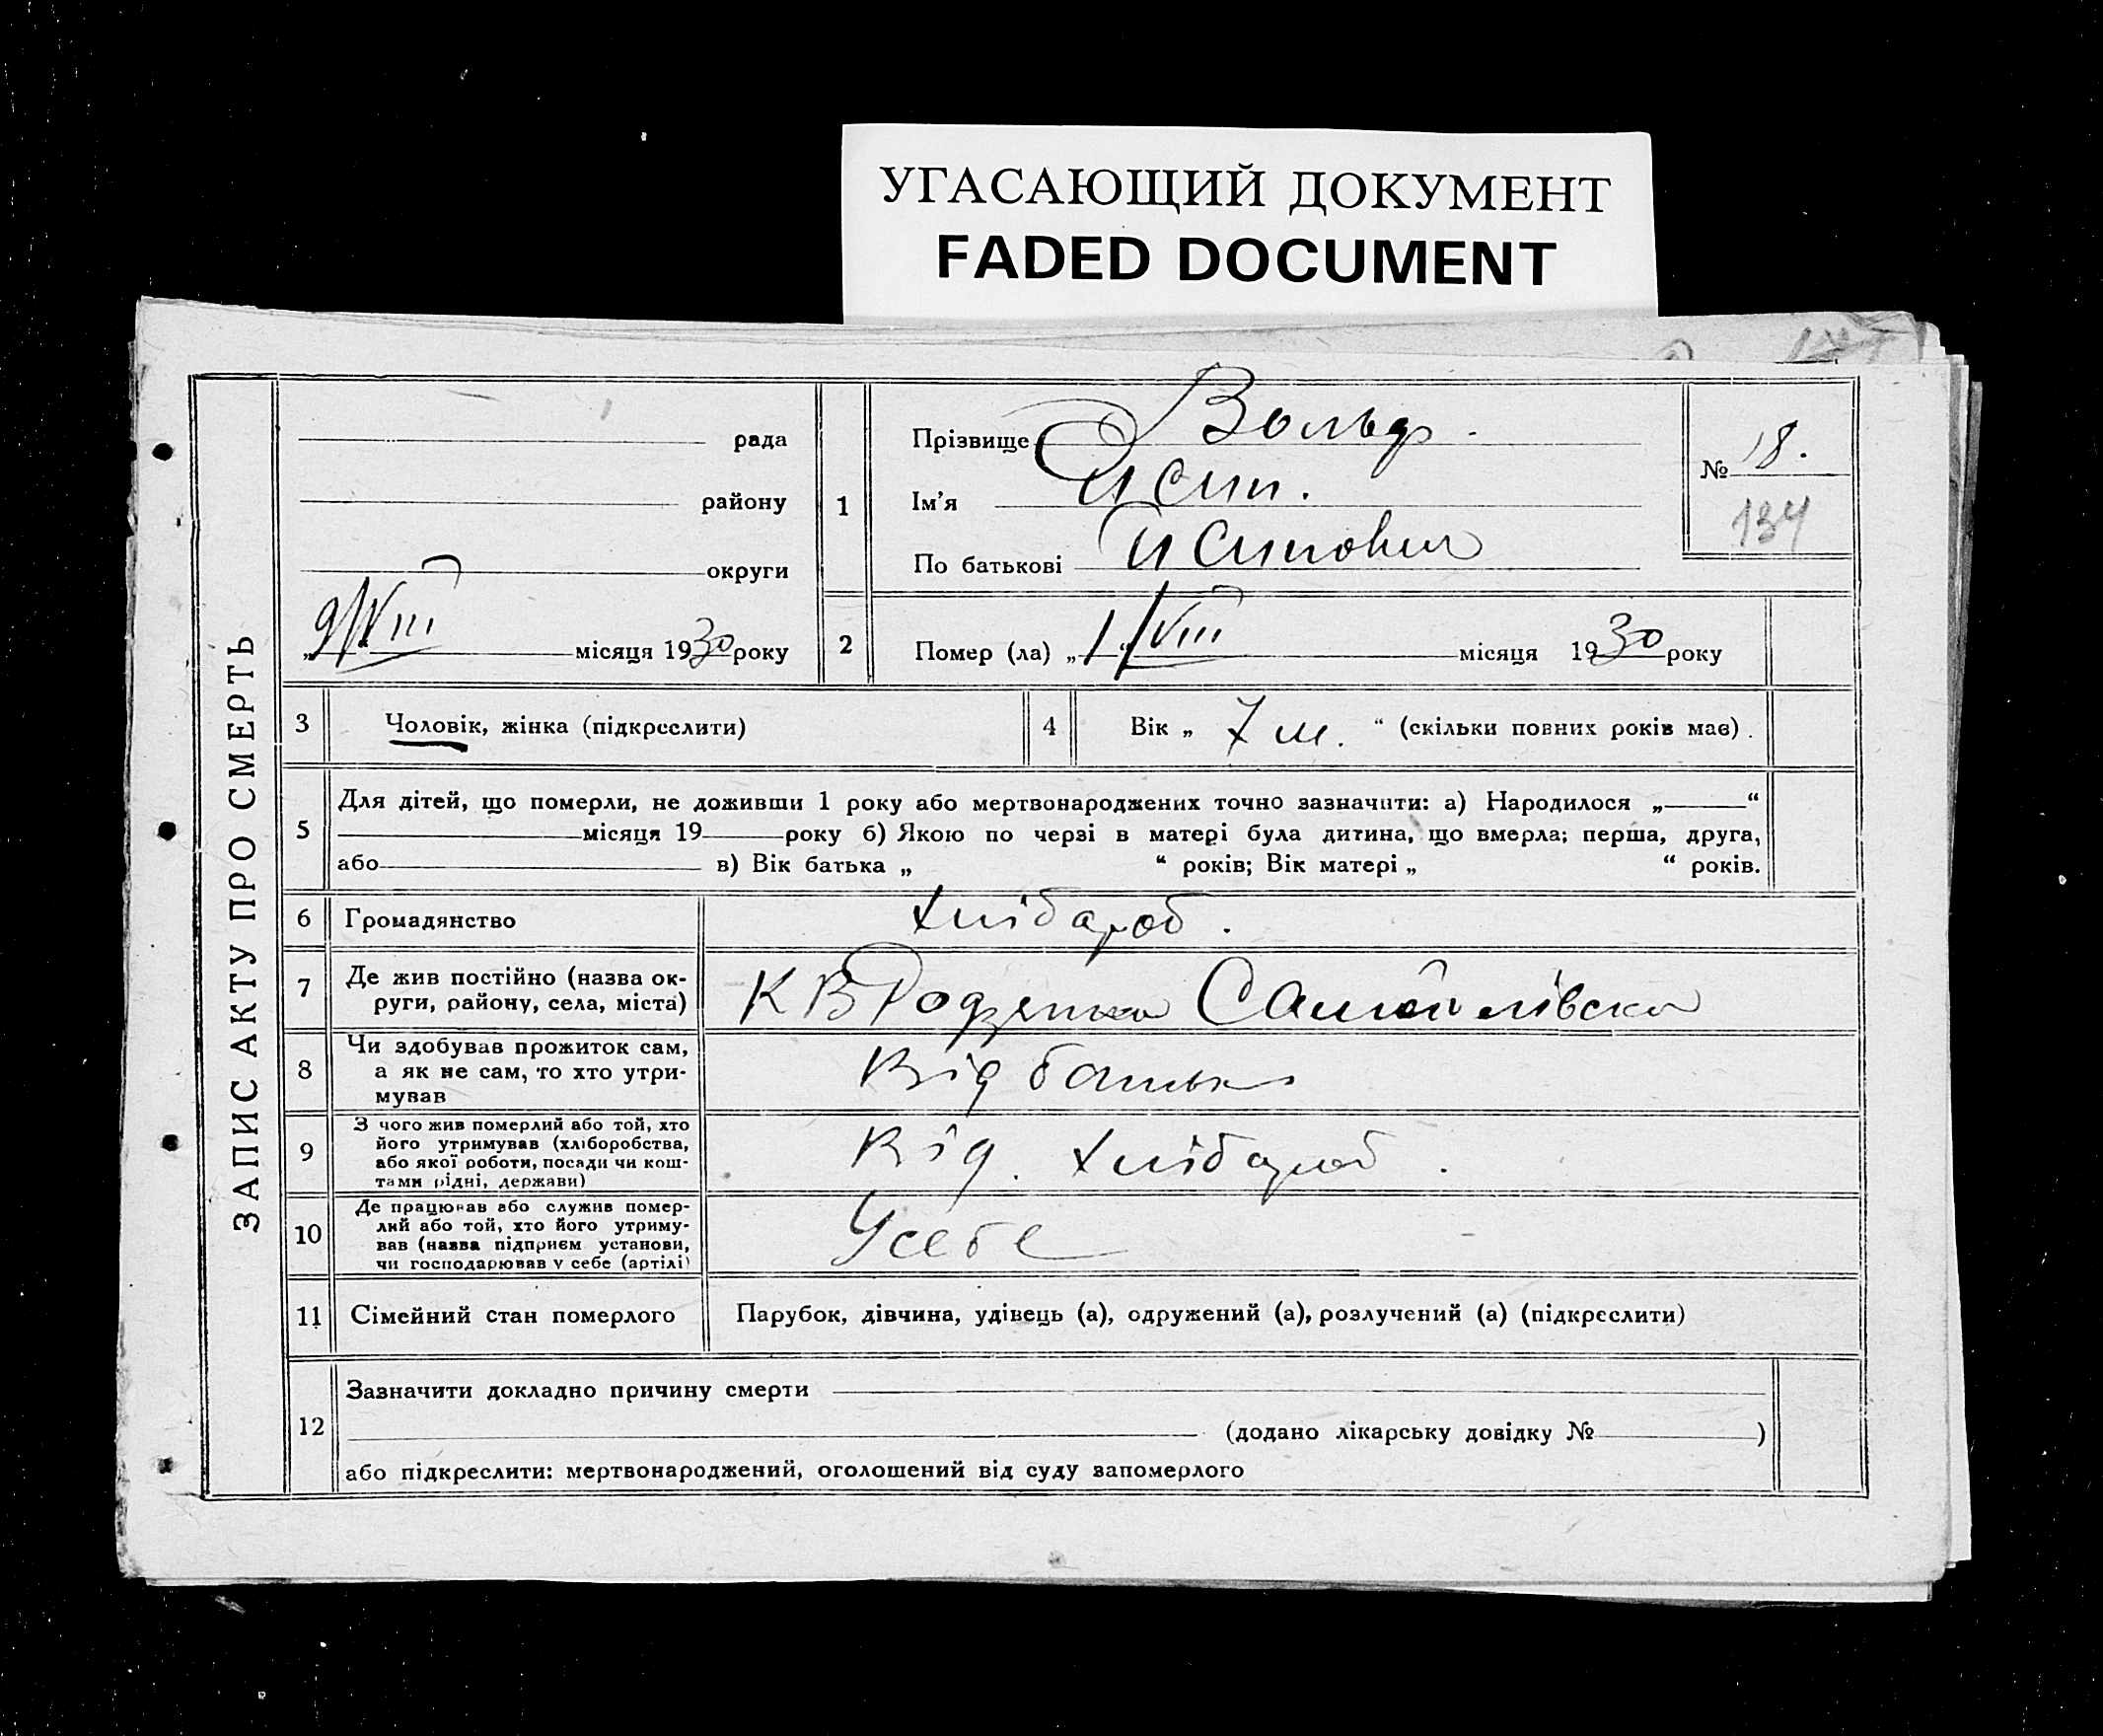 УГАСАЮЩИЙ ДОКУМЕНТ
FADED DOCUMENT
ЗАПИС АКТУ ПРО СМЕРТЬ
рада
району
округи
9/VIII місяця 1930 року
1
Прізвище Вольф.
Ім'я Йсип.
По батькові Йсипович
№ 18.
134
2
Помер (ла) „1/VIII місяця 1930 року
3
Чоловік, жінка (підкреслити)
4
Вік „ 7 м. “ (скільки повних років має).
5
Для дітей, що померли, не доживши 1 року або мертвонароджених точно зазначити: а) Народилося „ “
місяця 19 року б) Якою по черзі в матері була дитина, що вмерла; перша, друга,
або в) Вік батька „ “ років; Вік матері „ “ років.
6
Громадянство
Хлібароб.
7
Де жив постійно (назва ок-
руги, району, села, міста)
КВ Самойлівска
8
Чи здобував прожиток сам,
а як не сам, то хто утри-
мував
Від батька
9
З чого жив померлий або той, хто
його утримував (хліборобства,
або якої роботи, посади чи кош-
тами рідні, держави)
Від. Хлібароб.
10
Де працював або служив помер-
лий або той, хто його утриму-
вав (назва підприєм установи,
чи господарював у себе (артілі)
Усебе
11
Сімейний стан померлого
Парубок, дівчина, удівець (а), одружений (а), розлучений (а) (підкреслити)
12
Зазначити докладно причину смерти
(додано лікарську довідку № )
або підкреслити: мертвонароджений, оголошений від суду запомерлого